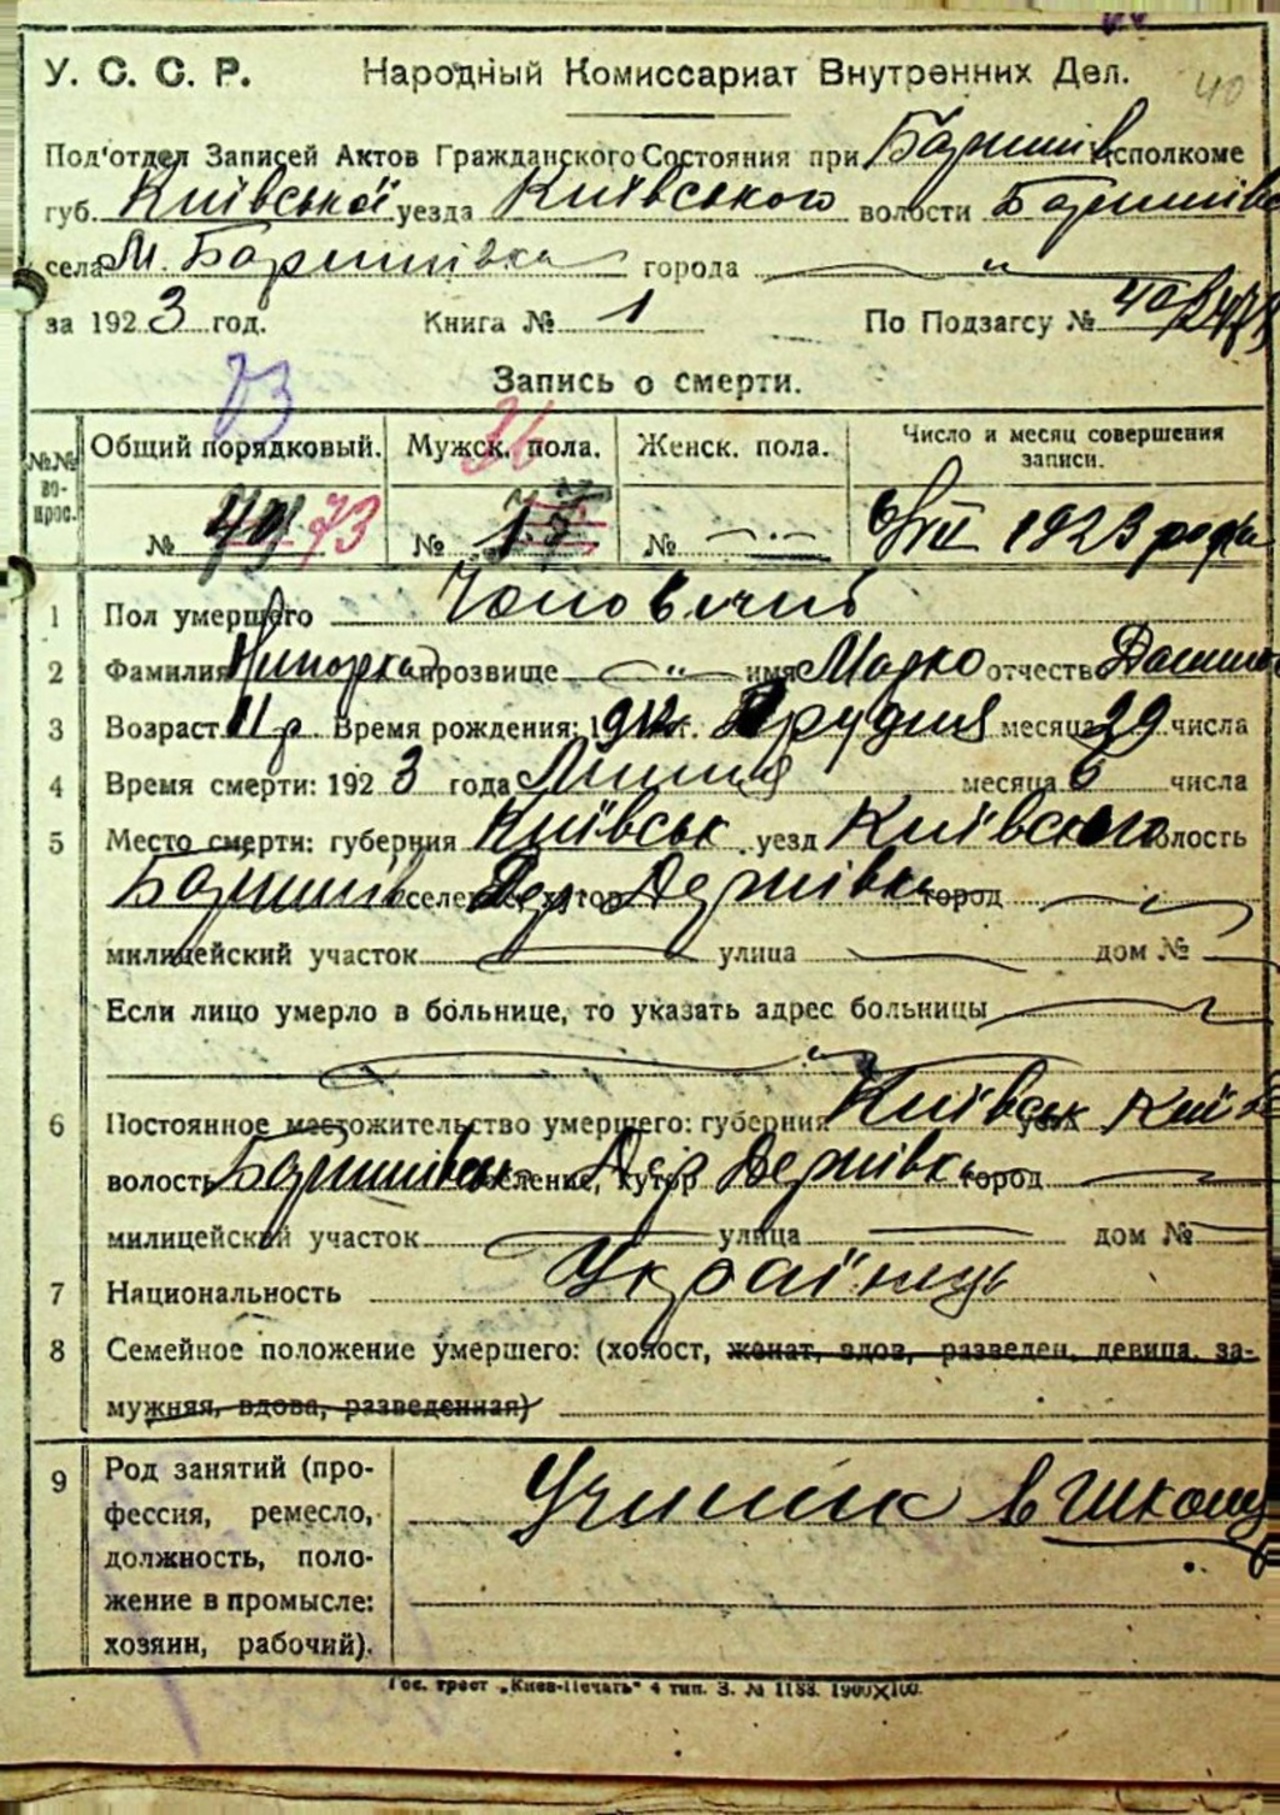 40
У. С. С. Р. Народный Комиссариат Внутренних Дел.
Под'отдел Записей Актов Гражданского Состояния при Баришів исполкоме
губ. Київської уезда Київського волости Баришівс
села М. Баришівка города "
за 1923 год. Книга № 1 По Подзагсу №
73
Запись о смерти.
36
№№ во- прос. Общий порядковый. Мужск. пола. Женск. пола. Число и месяц совершения записи.
№ 73 № 17 № 1923 рока
1 Пол умершего Чоловічий
2 Фамилия прозвище " имя Марко отчество
3 Возраст 11 р. Время рождения: 1912 г. Грудня месяца 29 числа
4 Время смерти: 1923 года Липня месяца 6 числа
5 Место смерти: губерния Київськ уезд Київского волость
Баришів селение, хутор Дер. Дернівка город
милицейский участок улица дом №
Если лицо умерло в больнице, то указать адрес больницы
6 Постоянное местожительство умершего: губерния Київськ уезд Київ
волость Баришівськ селение, хутор Дер Дернівка город
милицейский участок улица дом №
7 Национальность Українець
8 Семейное положение умершего: (холост, женат, вдов, разведен, девица, за-
мужняя, вдова, разведенная)
9 Род занятий (про- Учиник в школу
фессия, ремесло,
должность, поло-
жение в промысле:
хозяин, рабочий).
Гос. трест „Киев-Печать" 4 тип. З. № 1188. 1900×100.